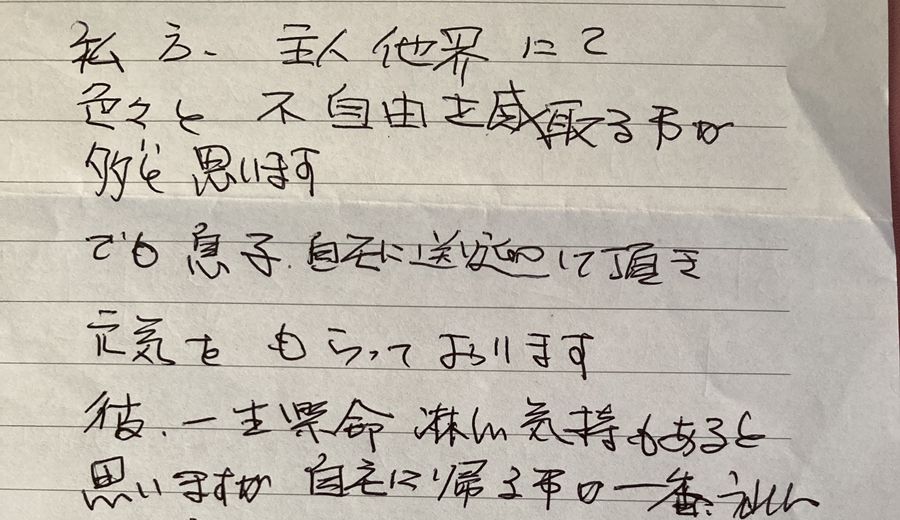 私方、主人他界にて
色々と 不自由を感取る事が
多々 思います
でも 息子、自宅に送迎して頂き
元気を もらって おります
彼、一生懸命 淋しい気持もあると
思いますが 自宅に帰る事が 一番、うれしい